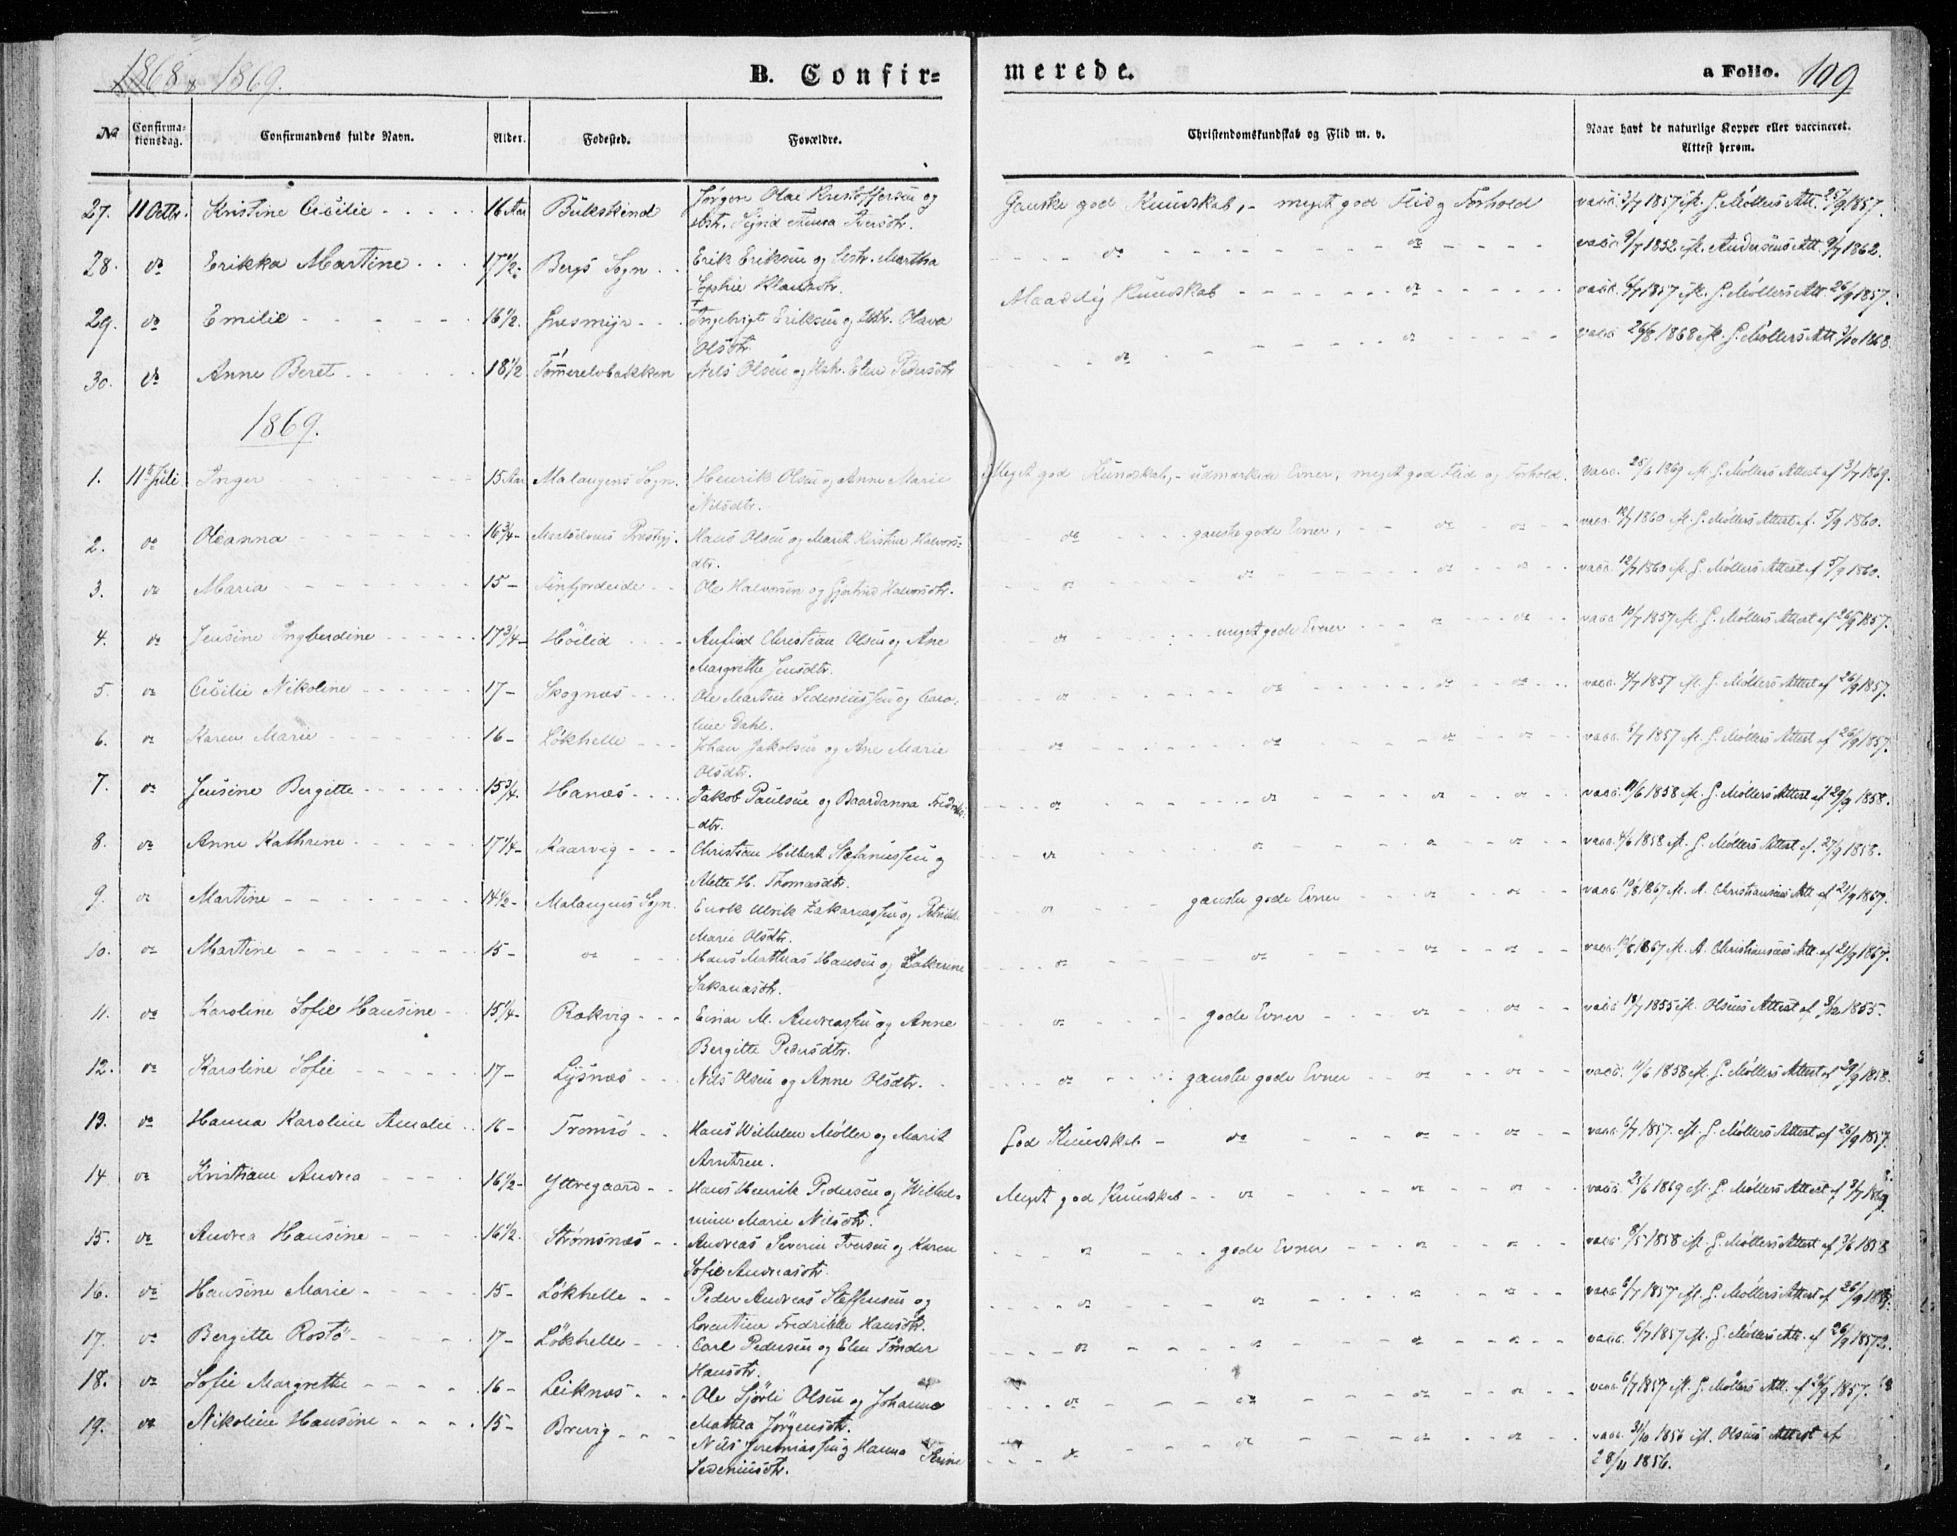 1868 & 1869.
B. Confir=
merede.
a Folio. 109
No
Confirma-
tionsdag.
Confirmandens fulde Navn.
Alder.
Fødested.
Forældre.
Christendomskundskab og Flid m. v.
Naar havt de naturlige Kopper eller vaccineret.
Attest herom.
27. 11 Octbr. Kristine Cecilie 16 Aar Bukskind Jørgen Olai Kristoffersen og Ganske god Kundskab, - meget god Flid og Forhold vacc. 2/7 1857 efl. G. Møllers Att. 25/9 1857.
Hstr. Iversdtr.
28. do Erikka Martine 17 1/2 Bergs Sogn Erik Eriksen og Hstr. Martha do do vacc. 9/7 1852 efl. Andersens Att. 9/7 1862.
Sophie Klausdtr.
29. do Emilie 16 1/2 Ingebrigt Eriksen og Hstr. Olava Maadelig Kundskab do vacc. 6/7 1857 efl. G. Møllers Att. 26/9 1857.
Olsdtr.
30. do Anne Beret 18 1/2 Tømmerelvbakken Nils Olsen og Hstr. Elen Pedersdtr. do do vacc. 26/8 1868 efl. G. Møllers Att. 3/10 1868.
1869.
1. 11te Juli Inger 15 Aar Malangens Sogn Henrik Olsen og Anne Marie Meget god Kundskab, - udmærkede Evner, meget god Flid og Forhold. vacc. 25/6 1869 efl. G. Møllers Attest af 3/7 1869.
Nilsdtr.
2. do Oleanna 16 3/4 - Maalselvens Præstgj. Hans Olsen og Marit Kirstine Halvors= do ganske gode Evner, do do vacc. 12/7 1860 efl. G. Møllers Attest af 5/9 1860.
dtr.
3. do Maria 15 - Finfjordeide Ole Halvorsen og Gjertrud Halvorsdtr. do do do do vacc. 12/7 1860 efl. G. Møllers Attest af 5/9 1860.
4. do Jensine Ingberdine 17 3/4 - Høilid Anfind Christian Olsen og Ane do meget gode Evner do do vacc. 10/7 1857 efl. G. Møllers Attest af 26/9 1857.
Margrethe Jensdtr.
5. do Cecilie Nikoline 17 - Skognæs Ole Martin Sedeniussen og Caro= do do do do vacc. 4/7 1857 efl. G. Møllers Attest af 26/9 1857.
line Dahl.
6. do Karen Marie 16 - Løkhelle Johan Jakobsen og Ane Marie do do do do vacc. 6/7 1857 efl. G. Møllers Attest af 26/9 1857.
Olsdtr.
7. do Jensine Bergitte 15 3/4. Hanæs Jakob Paulsen og Baardanna Fredriks= do do do do vacc. 11/6 1858 efl. G. Møllers Attest af 29/9 1858.
-dtr.
8. do Anne Kathrine 17 1/4 - Kaarvig Christian Hilbert Stefanussen og do do do do vacc. 4/6 1858 efl. G. Møllers Attest af. 27/9 1858.
Alette H. Thomasdtr.
9. do Martine 14 1/2 - Malangens Sogn. Enok Ulrik Zakariassen og Petrikke do ganske gode Evner do do vacc. 10/8 1867 efl. A. Christiansens Att. af 21/9 1867.
Marie Olsdtr.
10. do Martine 15 - do Hans Mathias Hansen og Zakarine do do do do vacc. 10/8 1867 efl. A. Christiansens Att. af 21/9 1867.
Sakariasdtr.
11. do Karoline Sofie Hansine 15 1/4 - Rakvig Einar M. Andreassen og Anne do gode Evner do do vacc. 18/7 1855 efl. Olsens Attest af 3/12 1855.
Bergitte Pedersdtr.
12. do Karoline Sofie 17 - Lysnæs Nils Olsen og Anne Olsdtr. do ganske gode Evner do do vacc. 11/6 1858 efl. G. Møllers Attest af 29/9 1858.
13. do Hanna Karoline Amalie 16 - Tromsø Hans Wilhelm Møller og Marit God Kundskab - do do do vacc. 6/7 1857. efl. G. Møllers Attest af 26/9 1857.
Arntzen.
14 do Kristiane Andrea 16 1/2 - Yttregaard Hans Henrik Pedersen og Wilhel= Meget god Kundskab do do do vacc. 25/6 1869 efl. G. Møllers Attest af 3/7 1869.
mine Marie Nilsdtr.
15. do Andrea Hansine 16 1/2. Strømsnæs Andreas Severin Iversen og Karen do gode Evner do do vacc. 8/5 1858 efl. G. Møllers Attest af 3/6 1858
Sofie Andreasdtr.
16. do Hansine Marie 15 - Løkhelle Peder Andreas Steffensen og do do do do vacc. 6/7 1857 efl. G. Møllers Attest af 26/9 1857.
Lorentine Fredrikke Hansdtr.
17. do Bergitte Rostø 17 - Løkhelle Carl Pedersen og Elen Tønder do do do do vacc. 6/7 1857 efl. G. Møllers Att. af 26/9 1857.
Hansdtr.
18. do Sofie Margrethe 16 - Leiknæs Ole Sjørli Olsen og Johanna do do do do vacc. 6/7 1857 efl. G. Møllers Att. af 26/9 1857.
Mathea Jørgensdtr.
19. do Nikoline Hansine 15 - Brevig Nils Jeremiassen og Hanna Serine do do do do vacc. 31/10 1856 efl. Olsens Attest af
Sedeniusdtr. 28/11 1856.